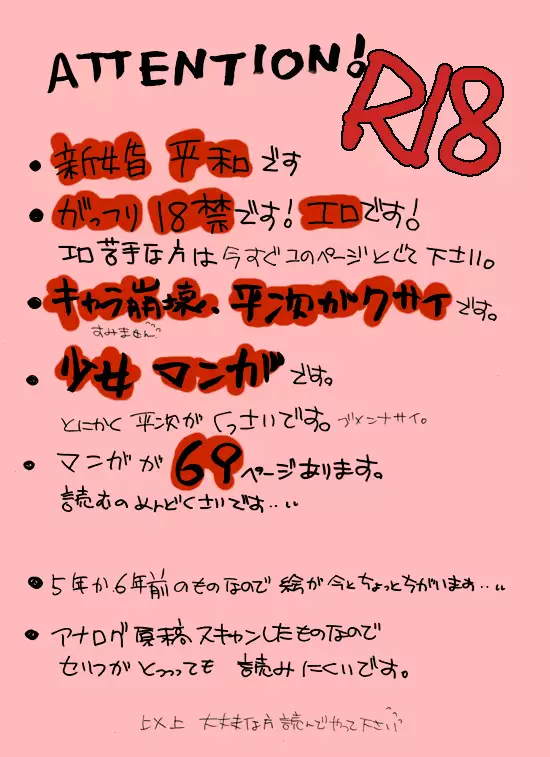 ATTENTION!
R18
● 新婚 平和です
● がっつり18禁です! エロです!
エロ苦手な方は今すぐこのページとじて下さい。
● キャラ崩壊、平次がクサイです。
すみません
● 少女マンガです。
とにかく平次がくっさいです。ゴメンナサイ。
● マンガが69ページあります。
読むのめんどくさいです‥‥
● 5年か6年前のものなので 絵が今とちょっとちがいます‥‥
● アナログ原稿スキャンしたものなので
セリフがとっっっても 読みにくいです。
以上 大丈夫な方読んでやって下さい